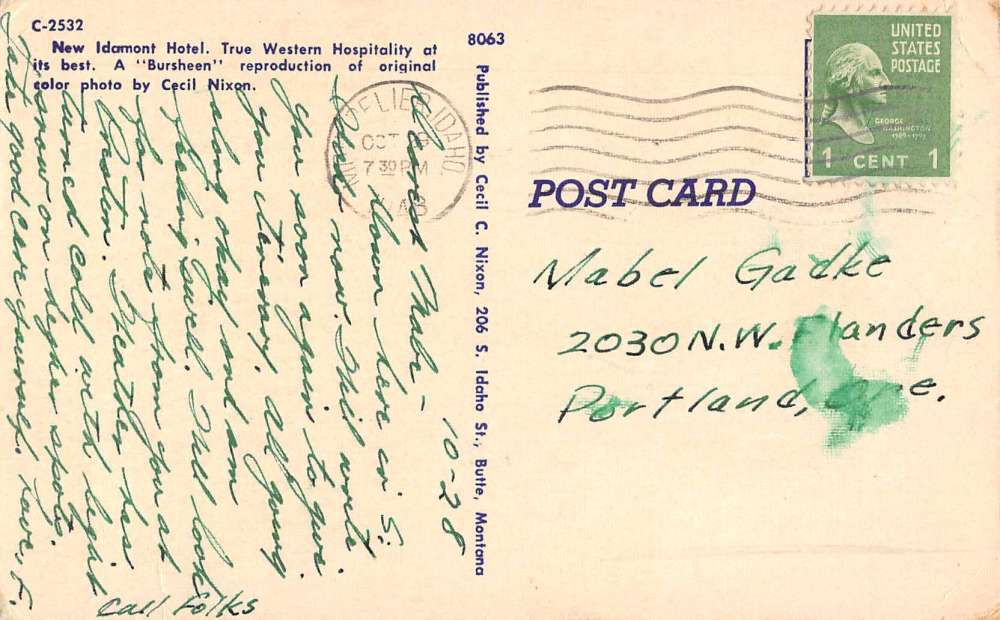 C-2532
New Idamont Hotel. True Western Hospitality at
its best. A "Bursheen" reproduction of original
color photo by Cecil Nixon.
8063
Published by Cecil C. Nixon, 206 S. Idaho St., Butte, Montana
UNITED
STATES
POSTAGE
GEORGE
WASHINGTON
1789-1797
1 CENT 1
IDAHO
OCT
7 30 PM
POST CARD
Mabel Gadke
2030 N.W. Flanders
Portland, Ore.
10-28
Mabe-
down here in S.
now. Will write
you soon again to give
you itinerary. All going
along okay and am
feeling swell. Will look
for note from you at
Weather has
turned cold with light
snow on higher spots.
Take good care yourself. Love, F.
Call Folks